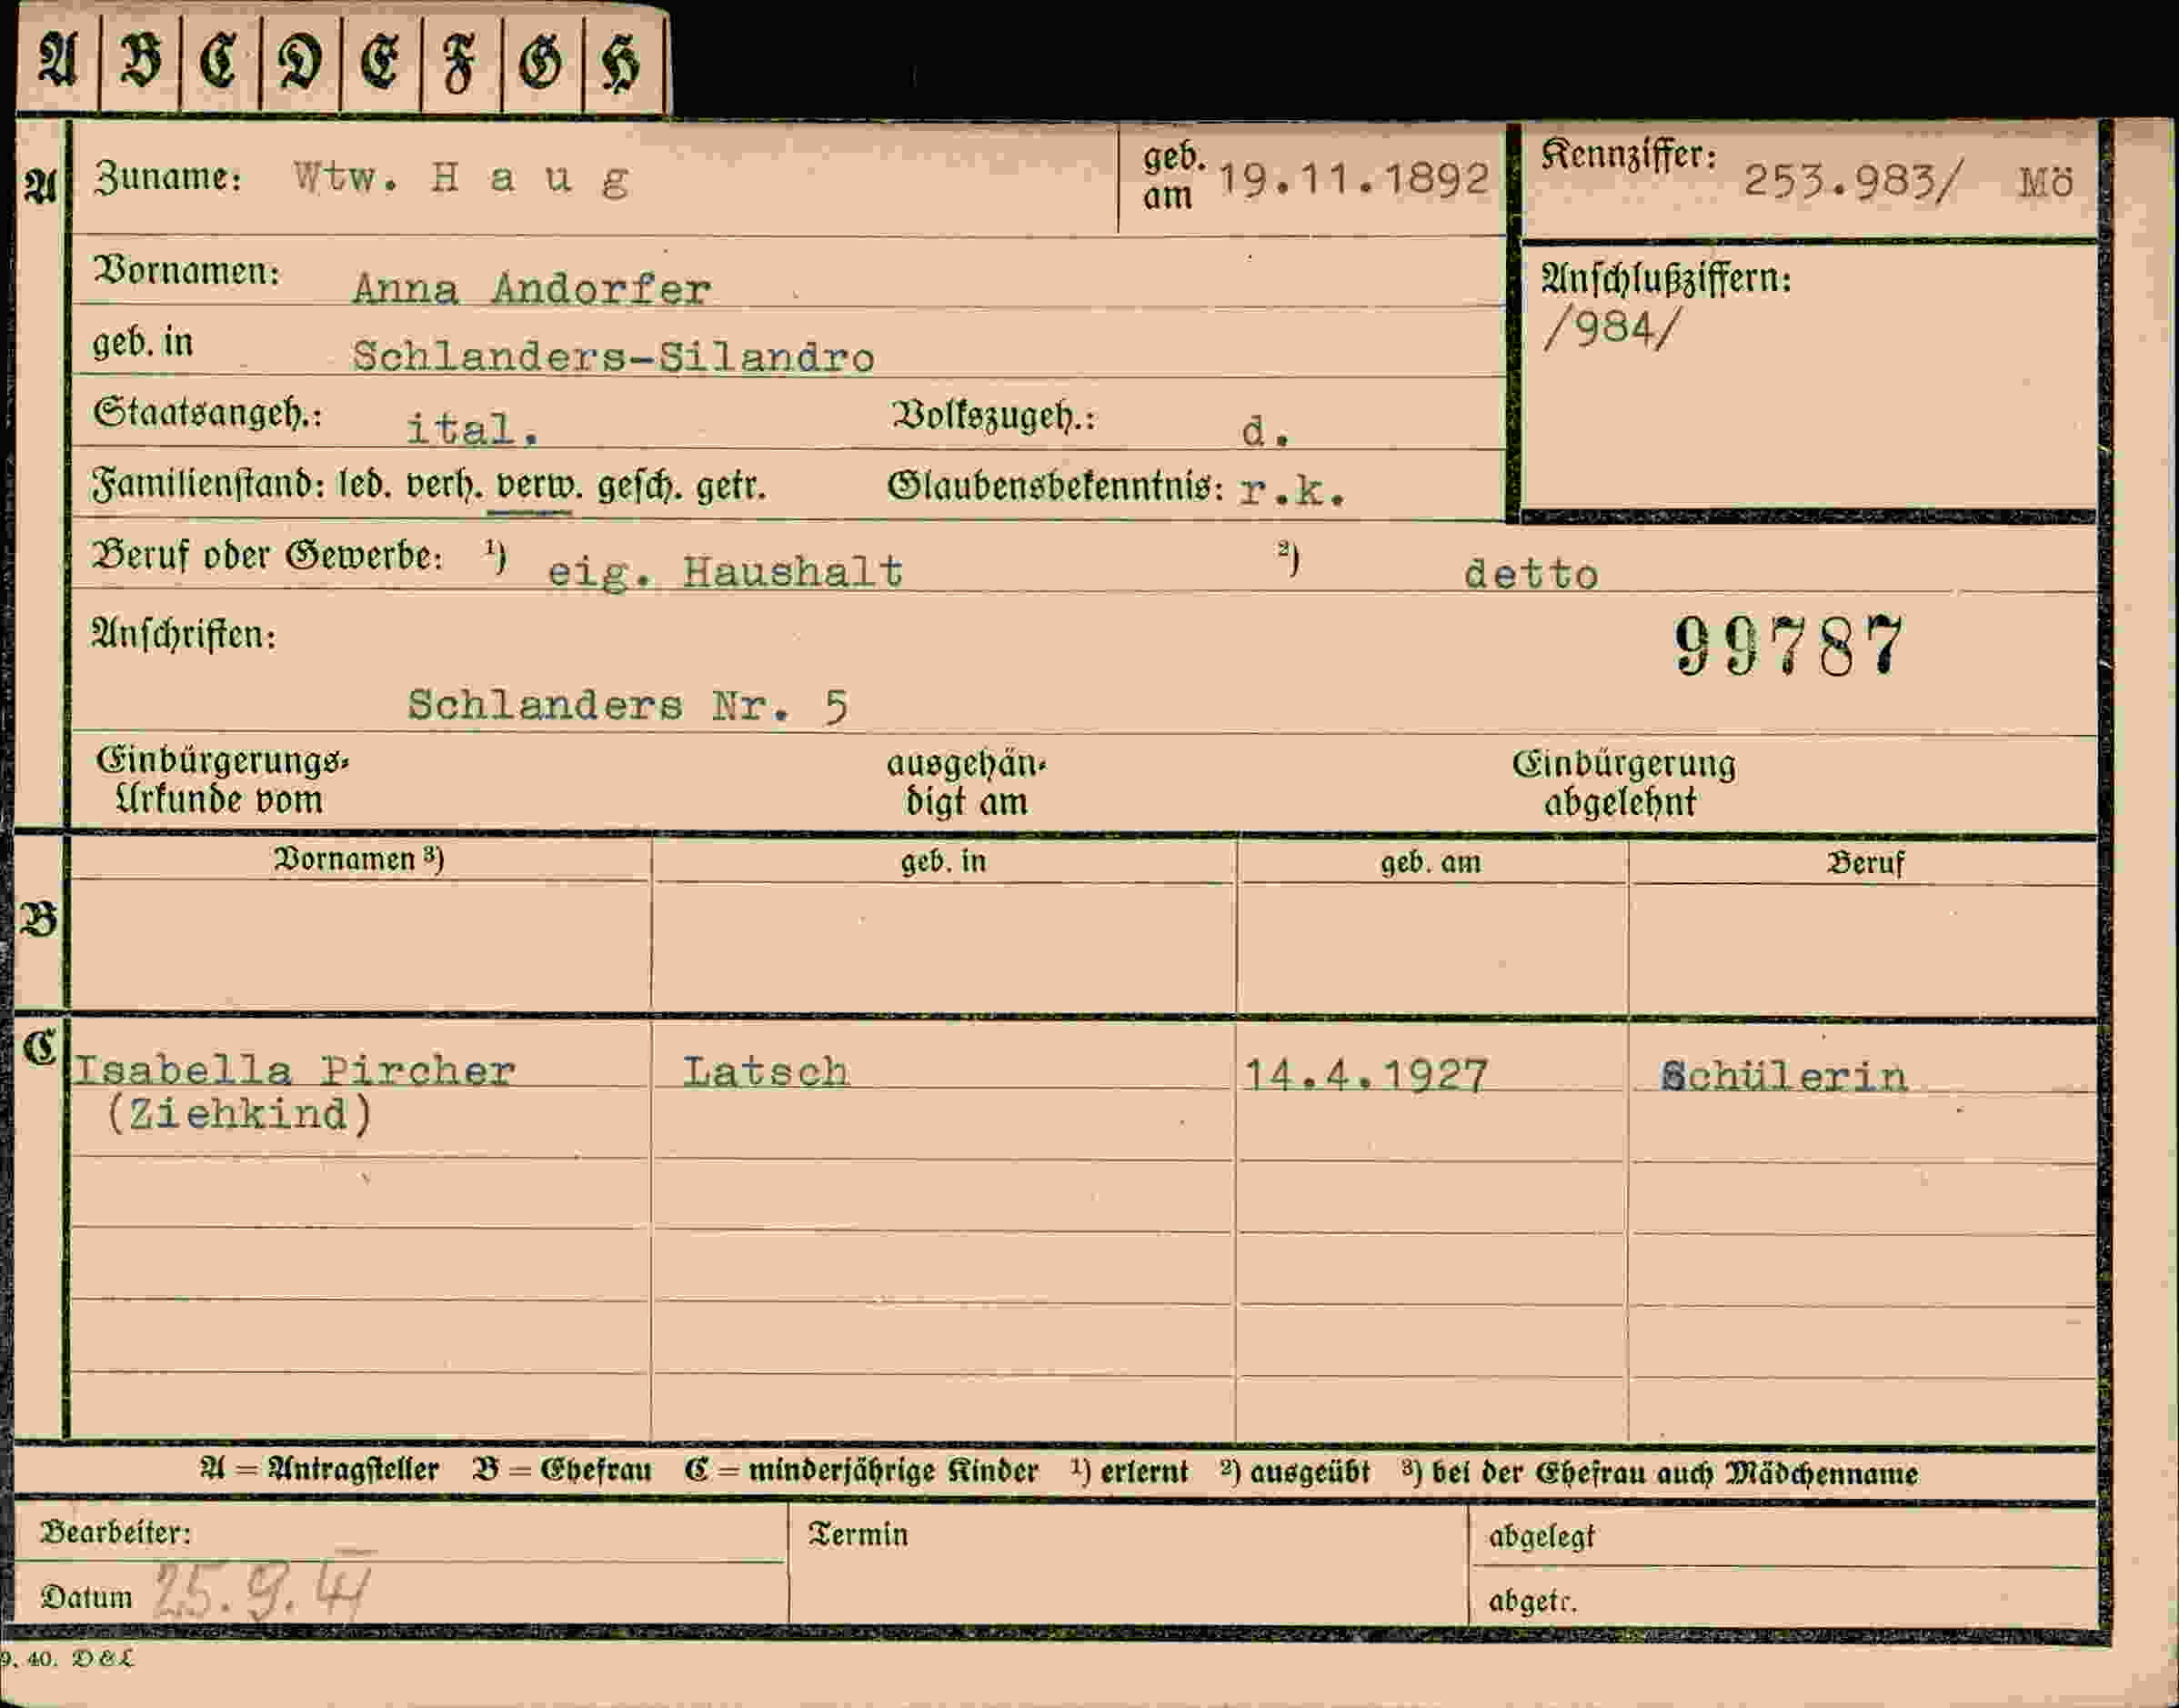 A B C D E F G H
A Zuname: Wtw. H a u g geb. am 19.11.1892 Kennziffer: 253.983/ Mö
Vornamen: Anna Andorfer Anschlußziffern:
/984/
geb. in Schlanders-Silandro
Staatsangeh.: ital. Volkszugeh.: d.
Familienstand: led. verh. verw. gesch. getr. Glaubensbekenntnis: r.k.
Beruf oder Gewerbe: 1) eig. Haushalt 2) detto
Anschriften: 99787
Schlanders Nr. 5
Einbürgerungs- ausgehän- Einbürgerung
Urkunde vom digt am abgelehnt
Vornamen 3) geb. in geb. am Beruf
B
C Isabella Pircher Latsch 14.4.1927 Schülerin
(Ziehkind)
A = Antragsteller B = Ehefrau C = minderjährige Kinder 1) erlernt 2) ausgeübt 3) bei der Ehefrau auch Mädchenname
Bearbeiter: Termin abgelegt
Datum 25.9.41 abgetr.
9. 40. D & L